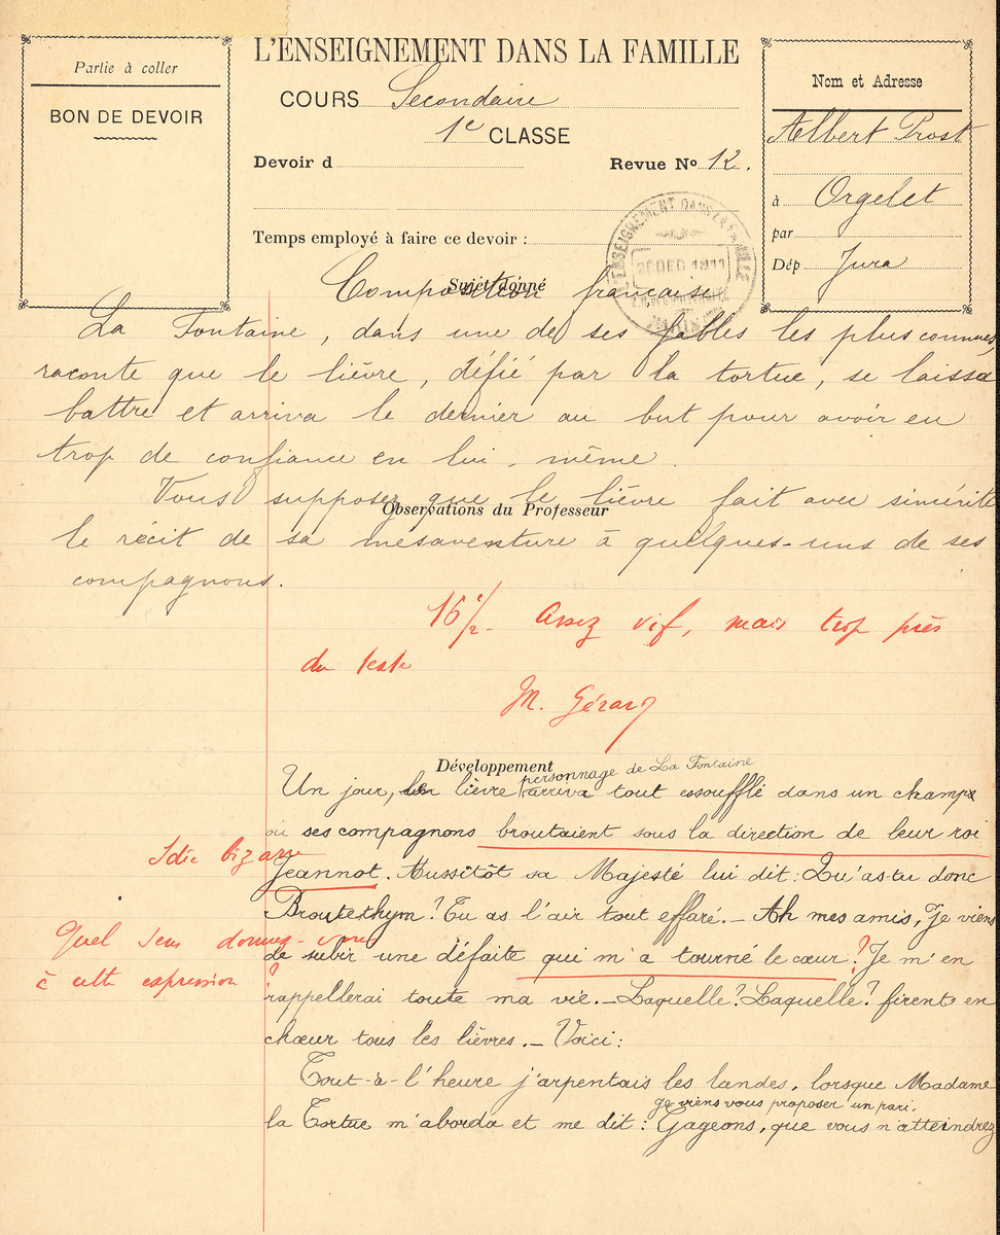 Partie à coller
BON DE DEVOIR
L'ENSEIGNEMENT DANS LA FAMILLE
COURS Secondaire
1e CLASSE
Devoir d
Revue No 12.
Temps employé à faire ce devoir :
Nom et Adresse
Albert Prost
à Orgelet
par
Dép Jura
L'ENSEIGNEMENT DANS LA FAMILLE
26 DEC 1911
PARIS
Sujet donné
Composition française
La Fontaine, dans une de ses fables les plus connues,
raconte que le lièvre, défié par la tortue, se laissa
battre et arriva le dernier au but pour avoir eu
trop de confiance en lui-même.
Vous supposez que le lièvre fait avec sincérité
Observations du Professeur
le récit de sa mésaventure à quelques-uns de ses
compagnons.
16 1/2 - Assez vif, mais trop près
du texte
M. Gérard
Développement
personnage de La Fontaine
Un jour, le lièvre arriva tout essoufflé dans un champ
où ses compagnons broutaient sous la direction de leur roi
Idée bizarre
Jeannot. Aussitôt sa Majesté lui dit : Qu'as-tu donc
Broutethym ? Tu as l'air tout effaré. — Ah mes amis, Je viens
Quel sens donnez-vous
de subir une défaite qui m'a tourné le cœur ? Je m'en
à cette expression ?
rappellerai toute ma vie. — Laquelle ? Laquelle ? firent en
chœur tous les lièvres. — Voici :
Tout-à-l'heure j'arpentais les landes, lorsque Madame
Je viens vous proposer un pari.
la Tortue m'aborda et me dit : Gageons, que vous n'atteindrez